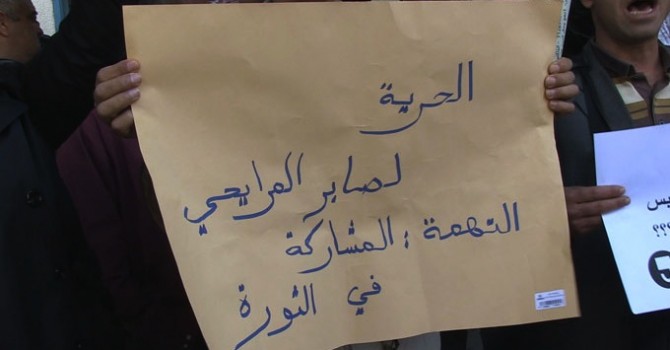 الحرية
لصابر المرايحي
التهمة : المشاركة
في الثورة
يس
؟؟؟